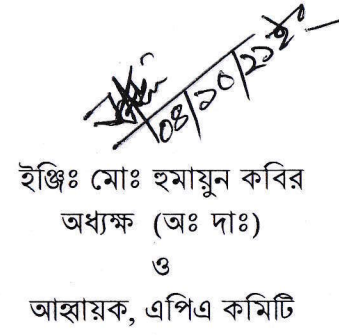 ০৪/১০/২১ইং
ইঞ্জিঃ মোঃ হুমায়ুন কবির
অধ্যক্ষ (অঃ দাঃ)
ও
আহ্বায়ক, এপিএ কমিটি